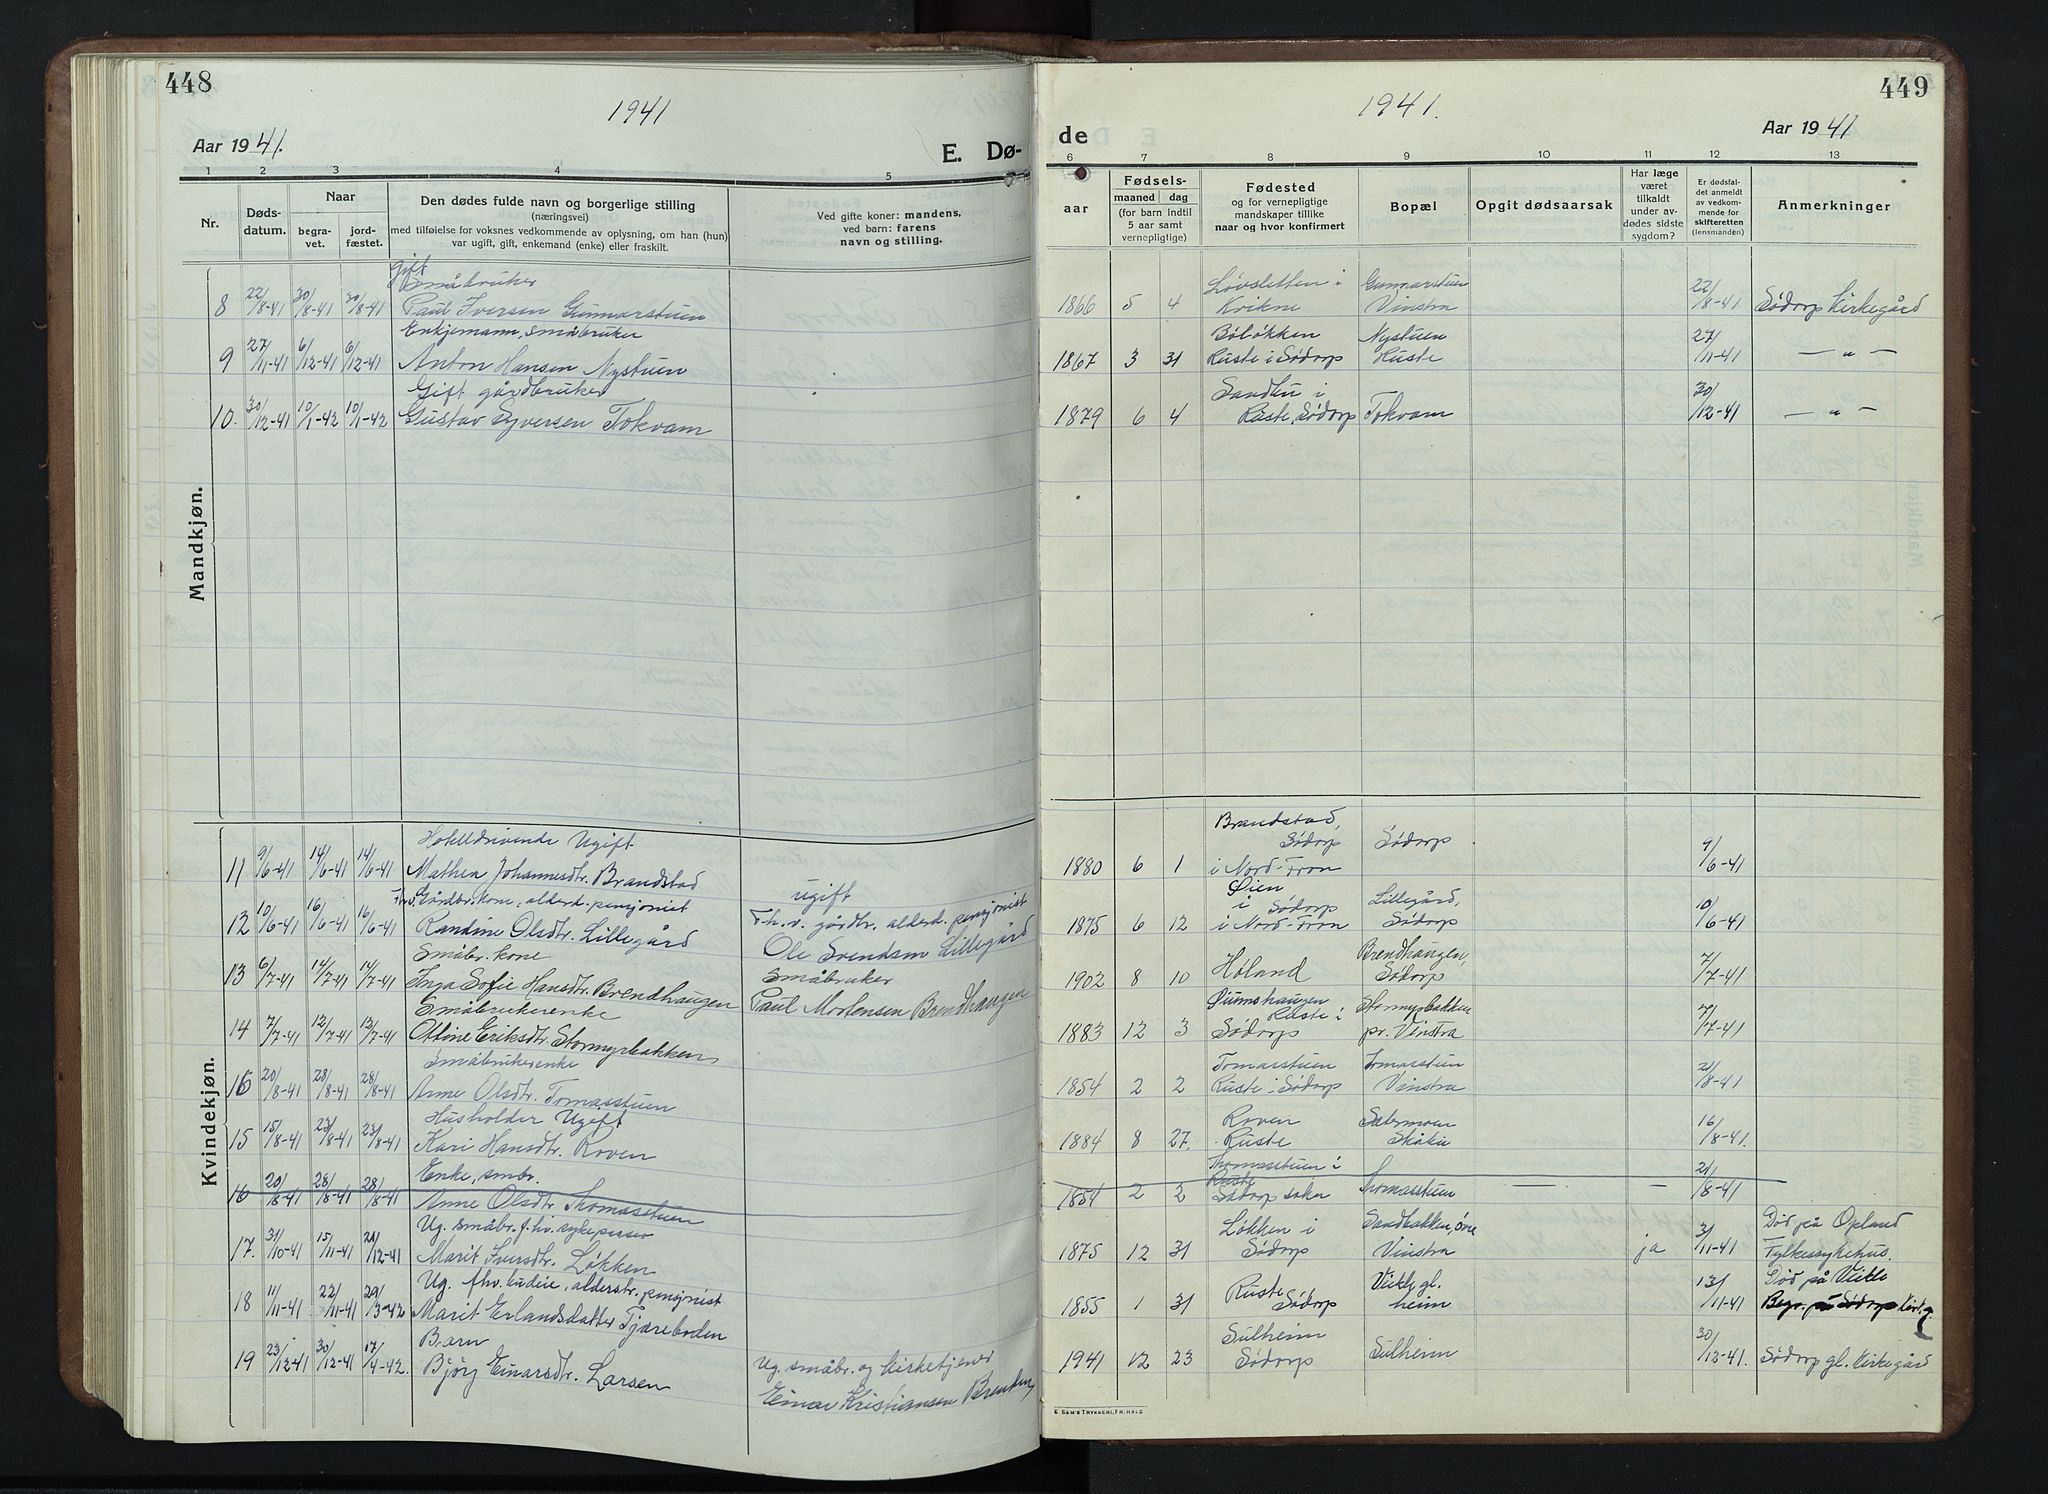 448
1941
Aar 1941.
E. Dø-
1 2 3 4 5
Nr.
Døds-
datum.
Naar
begra-
vet.
jord-
fæstet.
Den dødes fulde navn og borgerlige stilling
(næringsvei)
med tilføielse for voksnes vedkommende av oplysning, om han (hun)
var ugift, gift, enkemand (enke) eller fraskilt.
Ved gifte koner: mandens,
ved barn: farens
navn og stilling.
Mandkjøn.
Gift
Småbruker
8 22/8-41 30/8-41 30/8-41 Paul Iversen Gunnarstuen
Enkjemann, småbruker
9 27/11-41 6/12-41 6/12-41 Anton Hansen Nystuen
Gift gårdbruker
10. 30/12-41 10/1-42 10/1-42 Gustav Syversen Tokvam
Kvindekjøn.
Hotelldrivende Ugift
11 9/6-41 14/6-41 14/6-41 Mathea Johannesdtr. Brandstad
ugift
Fhv. Gårdbr. kone, alderd. pensjonist
12 10/6-41 16/6-41 16/6-41 Randine Olsdtr. Lillegård
Fh. v. gårdbr. alderd. pensjonist
Ole Svendsen Lillegård
Småbr. kone
13 6/7-41 14/7-41 14/7-41 Inga Sofie Hansdtr. Brendhaugen
Småbruker
Paul Mortensen Brendhaugen
Småbrukerenke
14 7/7-41 12/7-41 12/7-41 Oline Eriksdtr. Stormyrbakken
Småbrukerenke
16 20/8-41 28/8-41 28/8-41 Anne Olsdtr. Tomasstuen
Husholder Ugift
15 15/8-41 23/8-41 23/8-41 Kari Hansdtr. Roven
Enke, smbr.
16 20/8-41 28/8-41 28/8-41 Anne Olsdtr Thomasstuen
Ug. småbr. f.hv. sykepasser
17. 31/10-41 15/11-41 21/12-41 Marit Iversdtr. Løkken
Ug. fhv. budeie, alderstr. pensjonist
18 11/11-41 22/11-41 29/3-42 Marit Erlandsdatter Tjæreboden
Barn
19 23/12-41 30/12-41 17/4-42. Bjørg Einarsdtr. Larsen
Ug. småbr. og kirketjener
Einar Kristiansen Brenden
449
1941.
Aar 1941
de
6 7 8 9 10 11 12 13
aar
Fødsels-
maaned dag
(for barn indtil
5 aar samt
vernepligtige)
Fødested
og for vernepligtige
mandskaper tillike
naar og hvor konfirmert
Bopæl
Opgit dødsaarsak
Har læge
været
tilkaldt
under av-
dødes sidste
sygdom?
Er dødsfal-
det anmeldt
av vedkom-
mende for
skifteretten
(lensmanden)
Anmerkninger
Løvsletten i Gunnarstuen
1866 5 4 Kvikne Vinstra 22/8-41 Sødorp kirkegård
Bøløkken Nystuen
1867 3 31 Ruste i Sødorp Ruste 27/11-41 — " —
Sandbu i
1879 6 4 Ruste, Sødorp Tokvam 30/12-41 — " —
Brandstad,
Sødorp Sødorp
1880 6 1 i Nord-Fron 9/6-41
Øien,
i Sødorp Lillegård,
1875 6 12 i Nord-Fron Sødorp 10/6-41
Brendhaugen,
1902 8 10 Høland Sødorp 7/7-41
Ruste i Stormyrbakken
1883 12 3 Sødorp pr. Vinstra 7/7-41
Tomasstuen Tomasstuen
1854 2 2 Ruste i Sødorp Vinstra 21/8-41
Roven
1884 8 27. Ruste 16/8-41.
Thomasstuen i
Ruste
1854 2 2 Sødorp sokn Thomasstuen — — 21/8-41
Løkken i Sandbakken, øvre Død på Opland
1875 12 31 Sødorp Vinstra ja 3/11-41 Fylkessykehus.
Ruste Veikle gl. Død på Veikle
1855 1 31 Sødorp heim 13/11-41 Begr. på Sødorp kirkeg.
Sulheim
1941 12 23 Sødorp Sulheim 30/12-41. Sødorp gl. kirkegård
E SEM'S TRYKKERI, FR.HALD